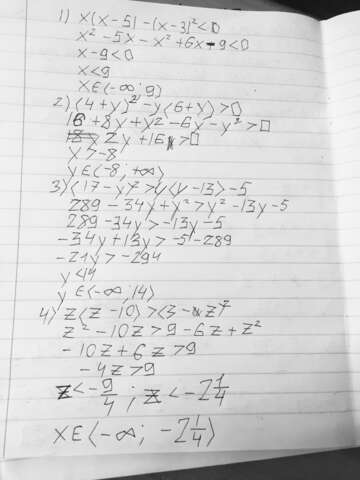 1) x(x-5)-(x-3)²<0
x²-5x-x²+6x-9<0
x-9<0
x<9
x∈(-∞;9)
2) (4+y)²-y(6+y)>0
16+8y+y²-6y-y²>0
2y+16>0
y>-8
y∈(-8;+∞)
3) (17-y)²>y(y-13)-5
289-34y+y²>y²-13y-5
289-34y>-13y-5
-34y+13y>-5-289
-21y>-294
y<14
y∈(-∞;14)
4) z(z-10)>(3-z)²
z²-10z>9-6z+z²
-10z+6z>9
-4z>9
z<-9/4; z<-2 1/4
x∈(-∞; -2 1/4)